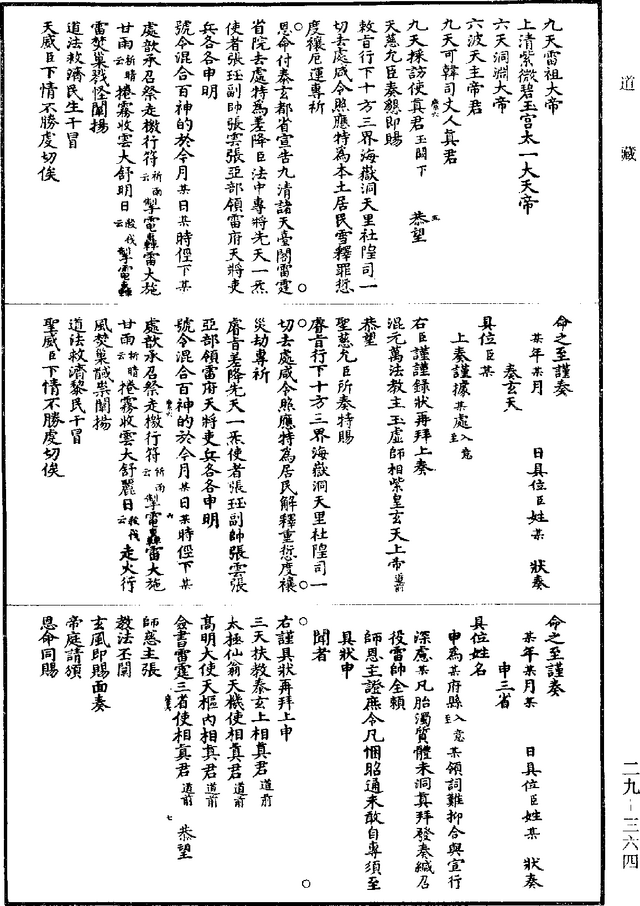 道藏
九天雷祖大帝
上清紫微碧玉宮太一大天帝
六天洞淵大帝
六波天主帝君
九天可韓司丈人真君
九天採訪使真君玉闕下 恭望
天慈允臣奏懇即賜
敕旨行下十方三界海嶽洞天里社隍司一
切去處咸令照應特為本土居民雪釋罪愆
度禳厄運專祈
恩命付泰玄都省宣告九清諸天臺閣雷霆
省院去處特為差降臣法中專將先天一炁
使者張珏副帥張雲張亞部領雷府天將吏
兵各各申明
號令混合百神的於今月某日某時徑下某
處歆承召祭走檄行符祈雨云掣電轟雷大施
甘雨祈晴云捲霧收雲大舒明日殺伐云掣電轟
雷焚巢戮怪闡揚
道法救濟民生干冒
天威臣下情不勝虔切俟
命之至謹奏
某年某月 日具位臣姓某 狀奏
奏玄天
具位臣某
上奏謹據某處入意至
右臣謹謹錄狀再拜上奏
混元萬法教主玉虛師相紫皇玄天上帝道前
恭望
聖慈允臣所奏特賜
睿旨行下十方三界海嶽洞天里社隍司一
切去處咸令照應特為居民解釋重愆度禳
災劫專祈
睿旨差降先天一炁使者張珏副帥張雲張
亞部領雷府天將吏兵各各申明
號令混合百神的於今月某日某時徑下某
處歆承召祭走檄行符祈雨云掣電轟雷大施
甘雨祈晴云捲霧收雲大舒麗日殺伐云走火行
風焚巢馘祟闡揚
道法救濟黎民干冒
聖威臣下情不勝虔切俟
命之至謹奏
某年某月某 日具位臣姓某 狀奏
申三省
具位姓名
申為某府縣入意至某領詞難抑合與宣行
深慮某凡胎濁質體未洞真拜發奏緘召
役雷帥全賴
師恩主證庶令凡悃昭通未敢自專須至
具狀申
聞者
右謹具狀再拜上申
三天扶教泰玄上相真君道前
太極仙翁天機使相真君道前
高明大使天樞內相真君道前
僉書雷霆三省使相真君道前 恭望
師慈主張
教法丕闡
玄風即賜面奏
帝庭請頒
恩命同賜
二九－三六四